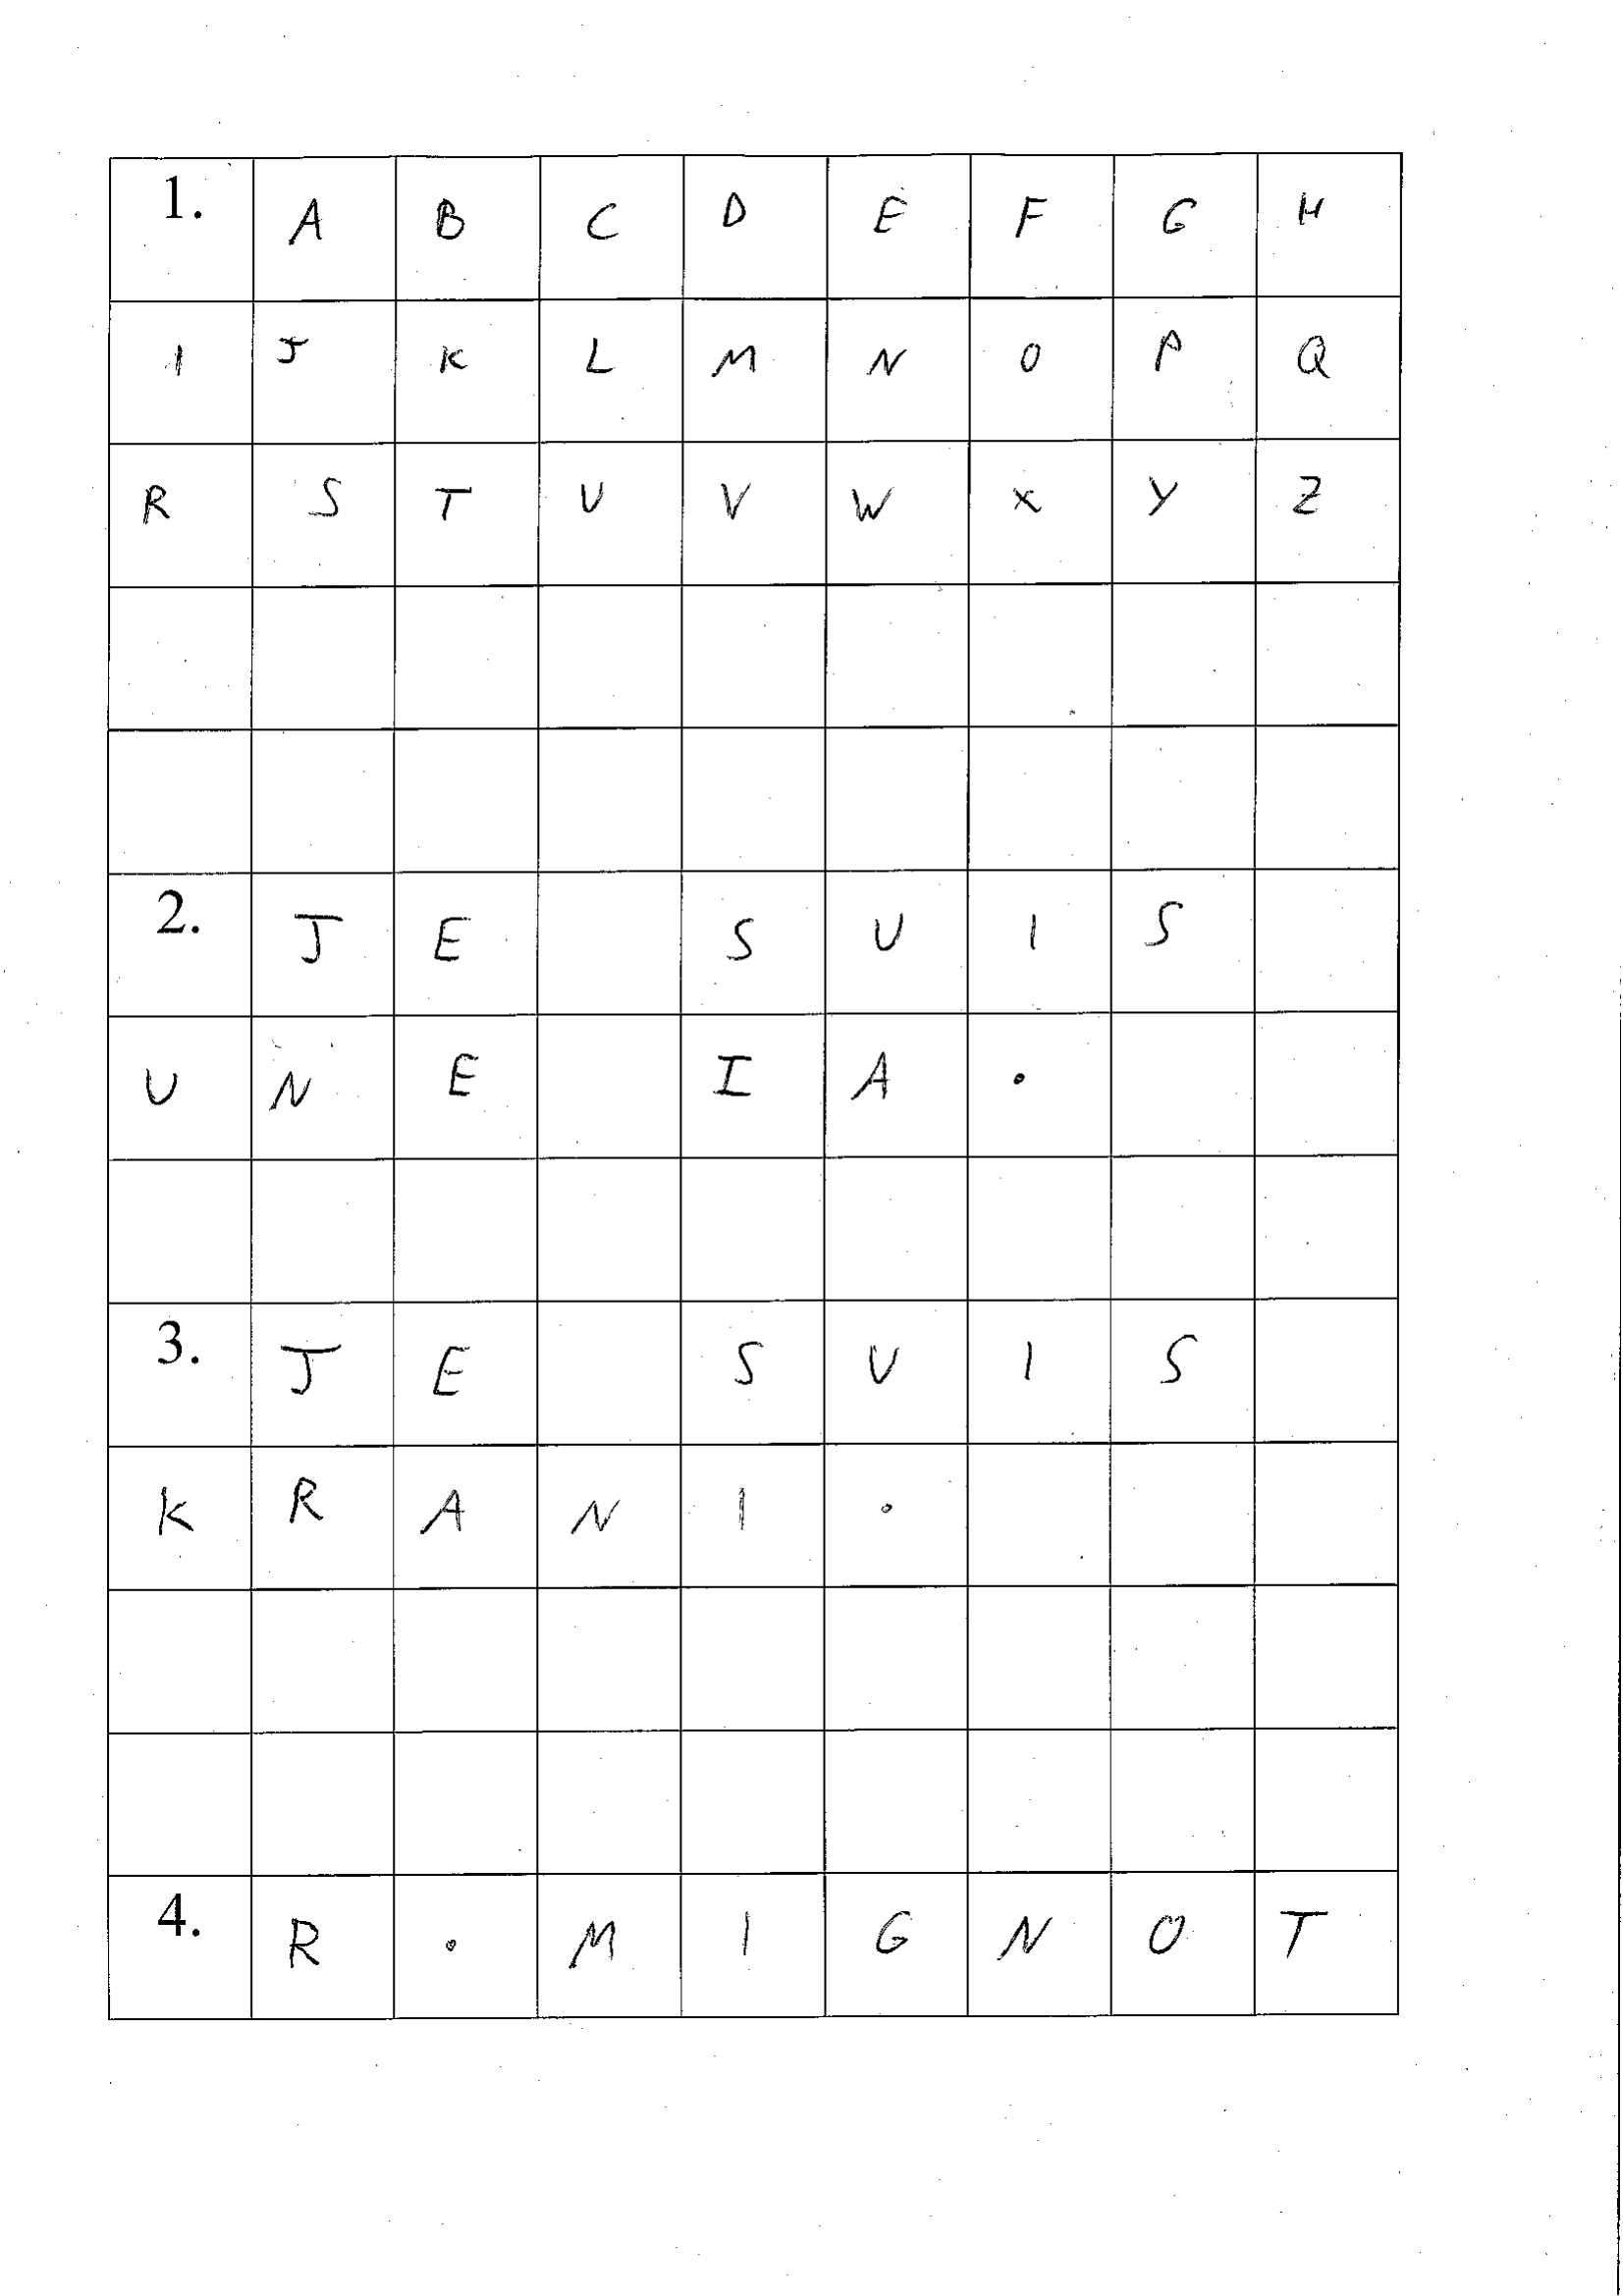 1. A B C D E F G H
I J K L M N O P Q
R S T U V W X Y Z
2. J E S U I S
U N E I A .
3. J E S U I S
K R A N I .
4. R . M I G N O T